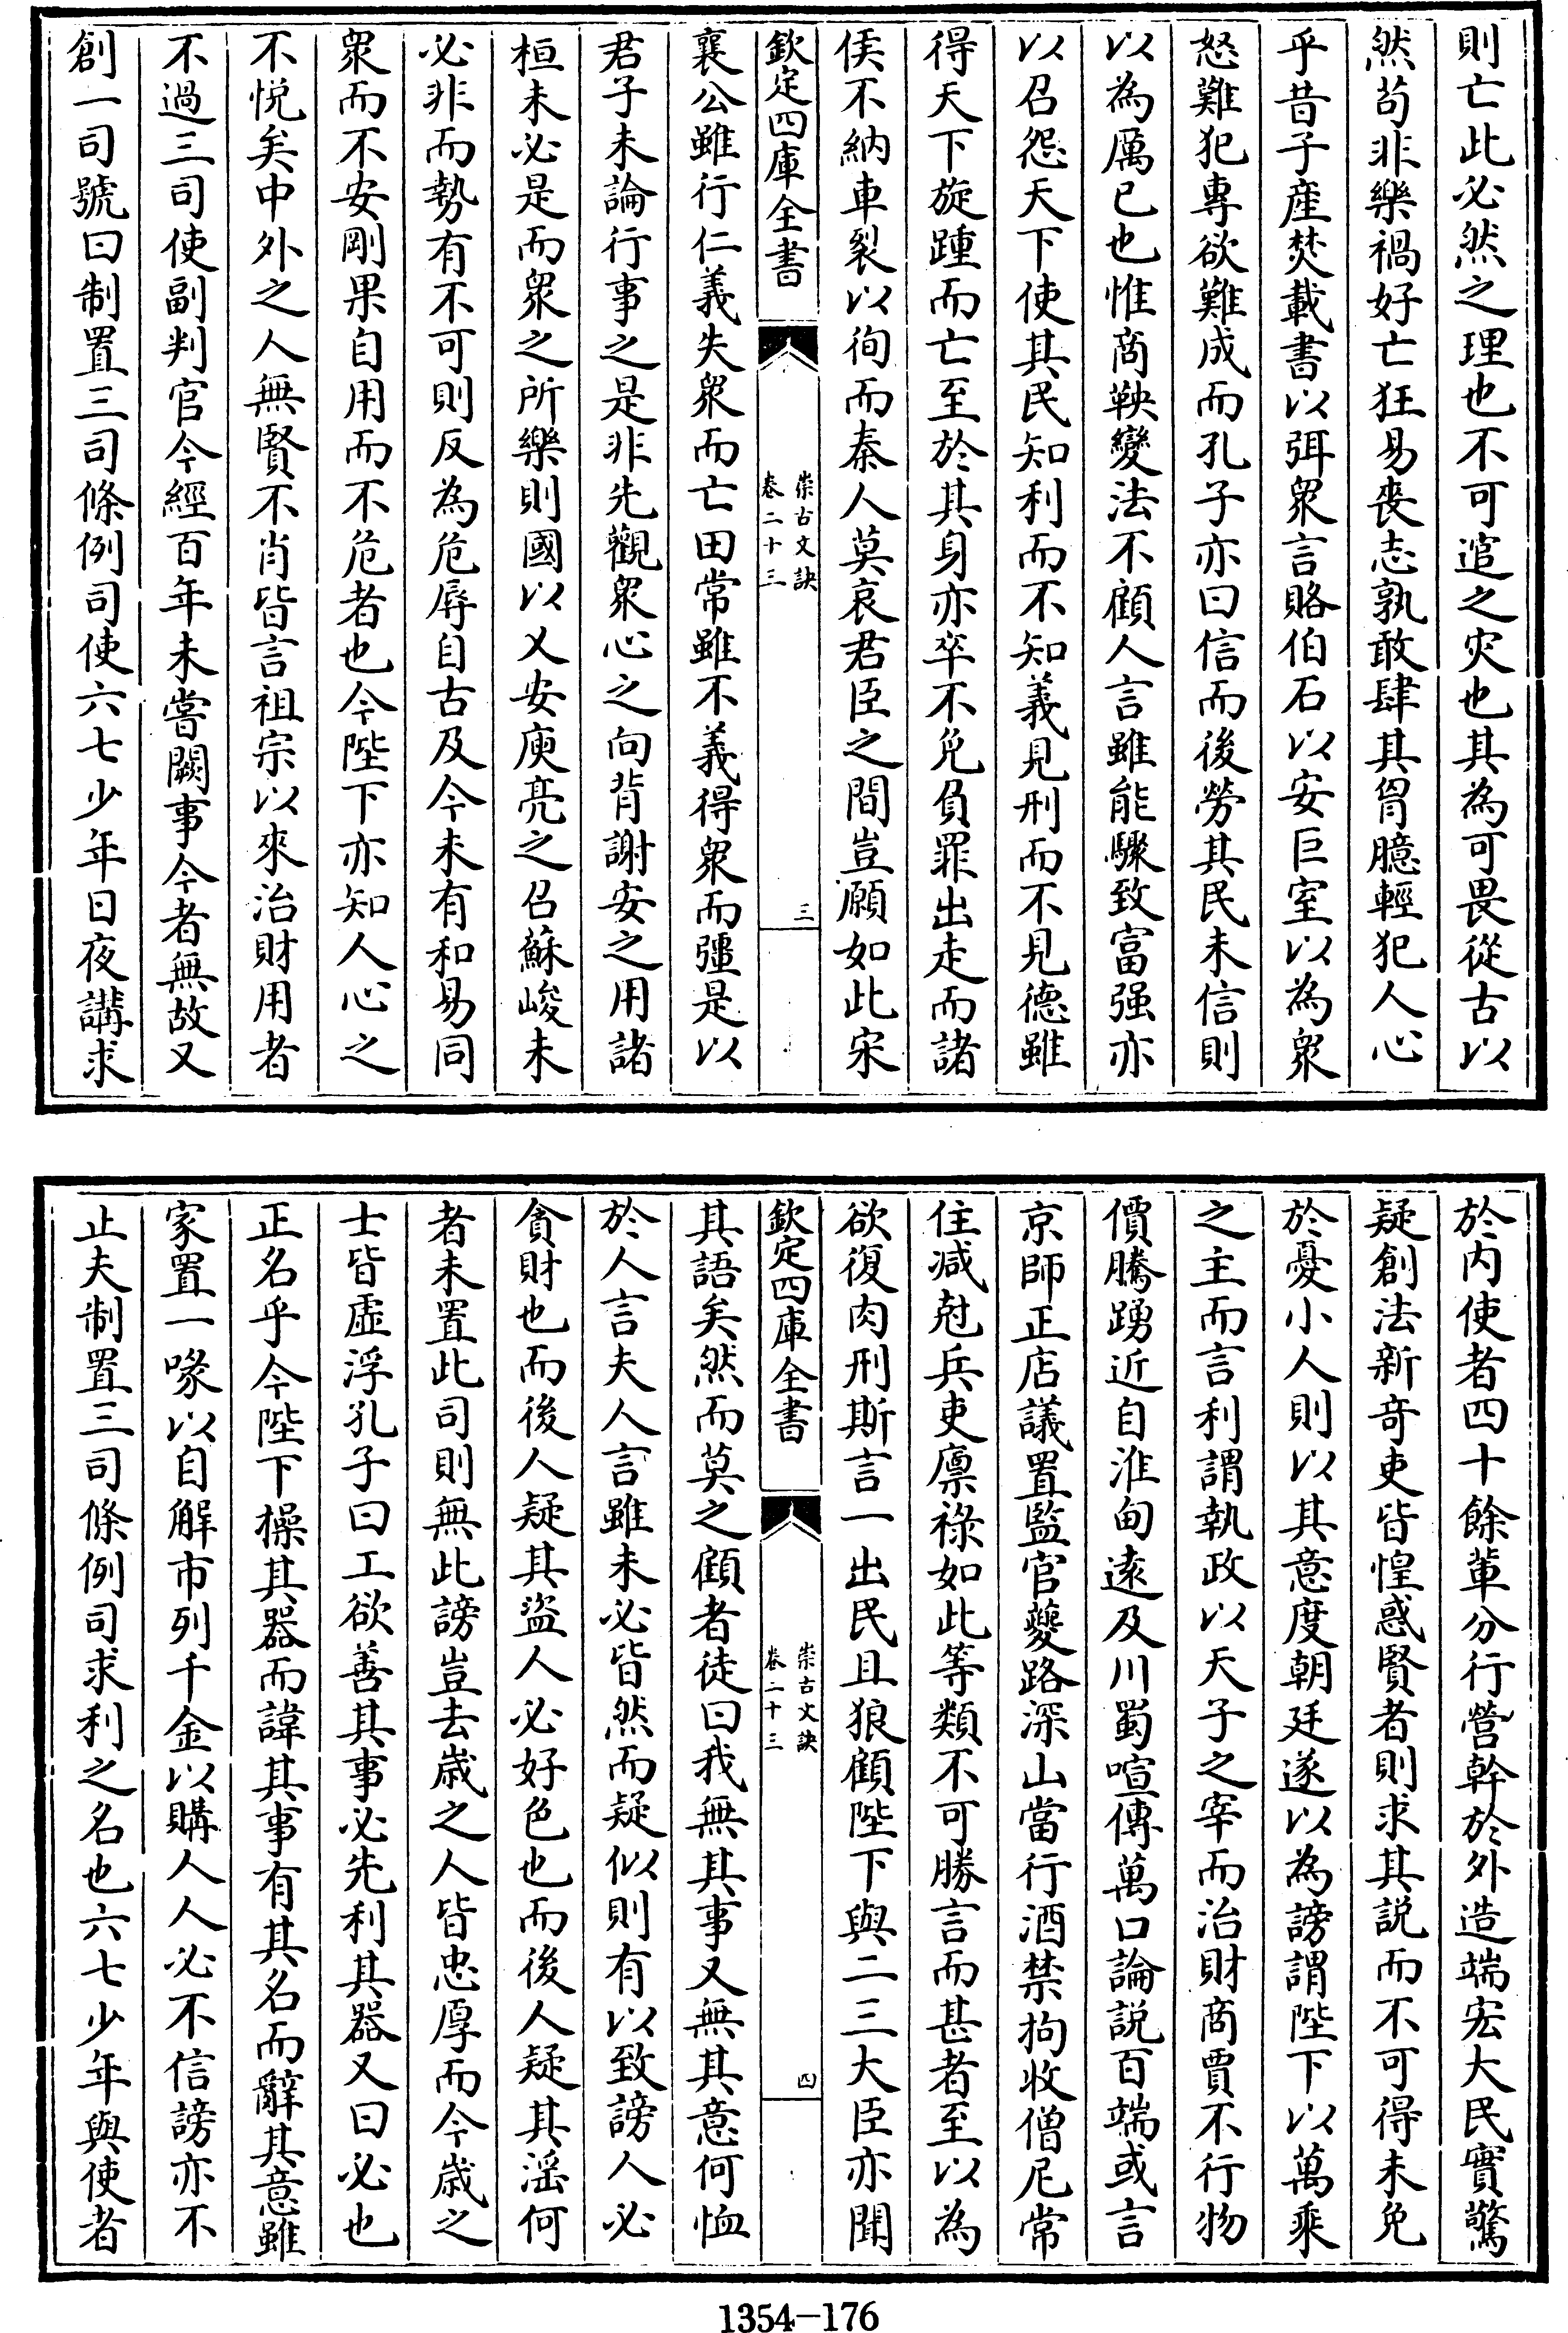 則亡此必然之理也不可逭之災也其為可畏從古以
然苟非樂禍好亡狂易喪志孰敢肆其胷臆輕犯人心
乎昔子産焚載書以弭衆言賂伯石以安巨室以為衆
怒難犯專欲難成而孔子亦曰信而後勞其民未信則
以為厲已也惟商鞅變法不顧人言雖能驟致富强亦
以召怨天下使其民知利而不知義見刑而不見德雖
得天下旋踵而亡至於其身亦卒不免負罪出走而諸
侯不納車裂以徇而秦人莫哀君臣之間豈願如此宋
欽定四庫全書
崇古文訣
卷二十三
三
襄公雖行仁義失衆而亡田常雖不義得衆而彊是以
君子未論行事之是非先觀衆心之向背謝安之用諸
桓未必是而衆之所樂則國以乂安庾亮之召蘇峻未
必非而勢有不可則反為危辱自古及今未有和易同
衆而不安剛果自用而不危者也今陛下亦知人心之
不悦矣中外之人無賢不肖皆言祖宗以來治財用者
不過三司使副判官今經百年未嘗闕事今者無故又
創一司號曰制置三司條例司使六七少年日夜講求
於内使者四十餘輩分行營幹於外造端宏大民實驚
疑創法新奇吏皆惶惑賢者則求其説而不可得未免
於憂小人則以其意度朝廷遂以為謗謂陛下以萬乘
之主而言利謂執政以天子之宰而治財商賈不行物
價騰踴近自淮甸遠及川蜀喧傳萬口論説百端或言
京師正店議置監官夔路深山當行酒禁拘收僧尼常
住减尅兵吏廪禄如此等類不可勝言而甚者至以為
欲復肉刑斯言一出民且狼顧陛下與二三大臣亦聞
欽定四庫全書
崇古文訣
卷二十三
四
其語矣然而莫之顧者徒曰我無其事又無其意何恤
於人言夫人言雖未必皆然而疑似則有以致謗人必
貪財也而後人疑其盜人必好色也而後人疑其滛何
者未置此司則無此謗豈去歳之人皆忠厚而今歳之
士皆虛浮孔子曰工欲善其事必先利其器又曰必也
正名乎今陛下操其器而諱其事有其名而辭其意雖
家置一喙以自解市列千金以購人人必不信謗亦不
止夫制置三司條例司求利之名也六七少年與使者
1354-176